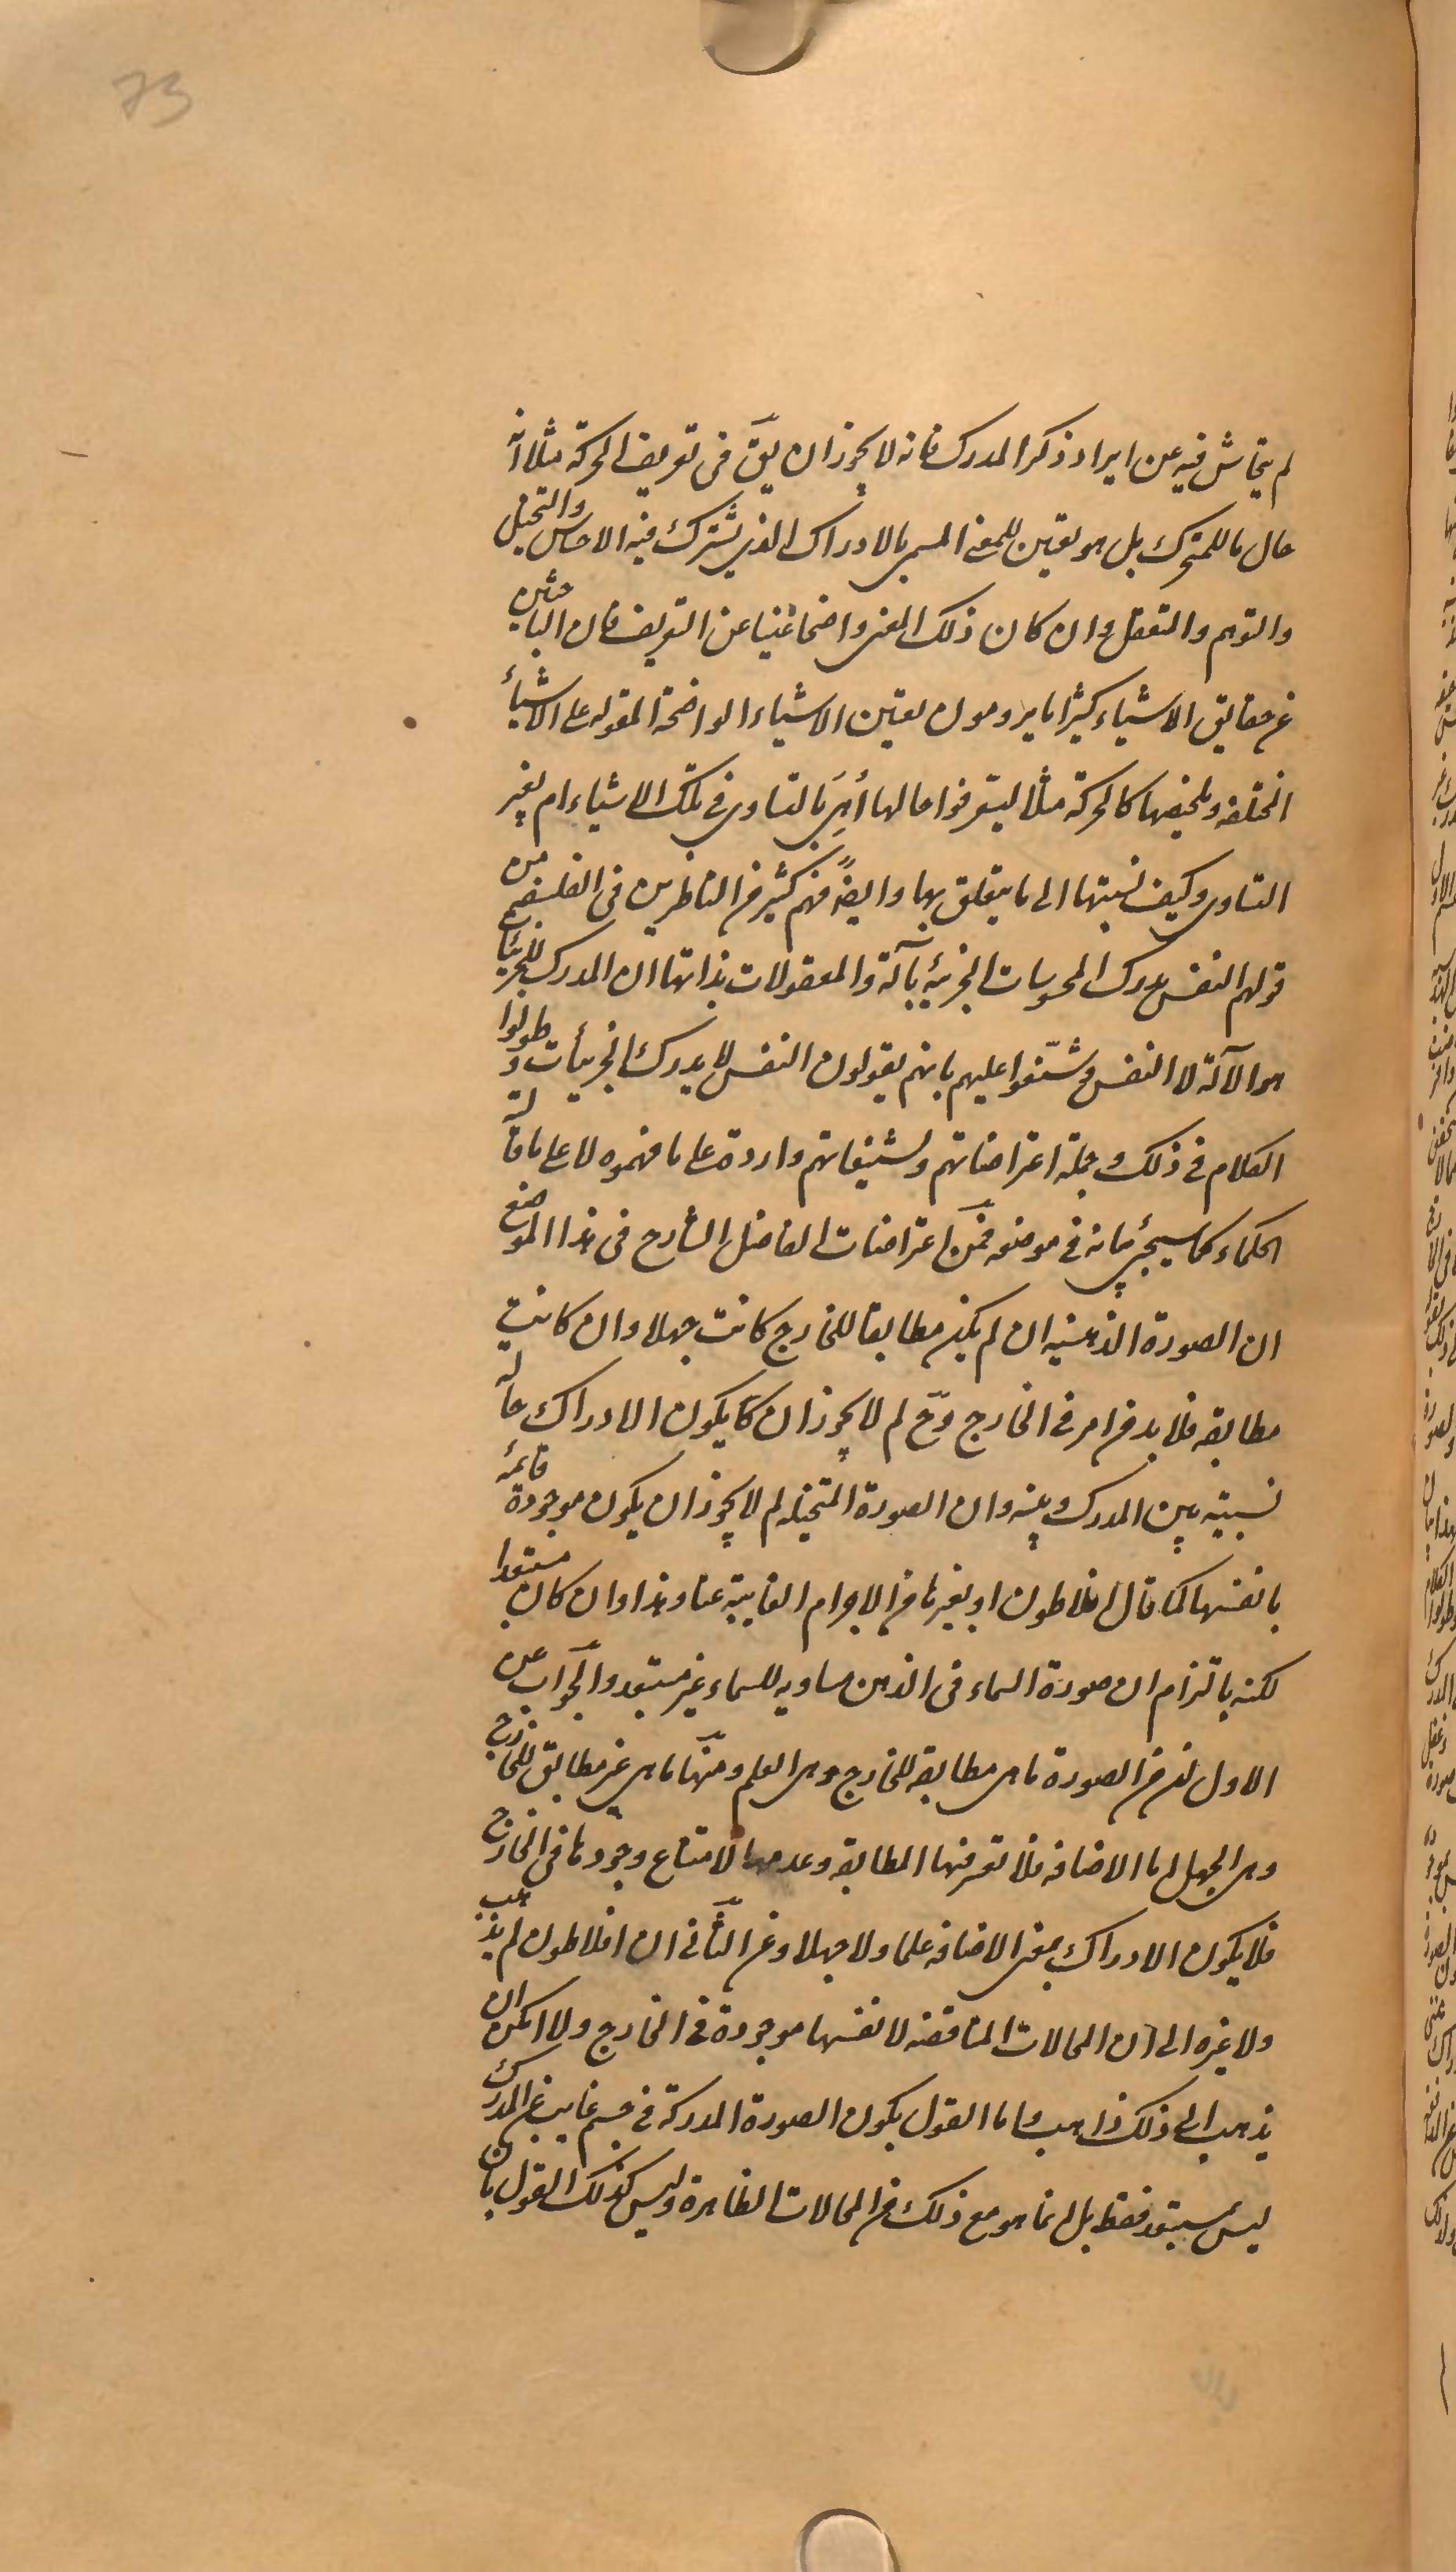 73
لم يتحاش فيه عن ايراد ذكر المدرك فانه لا يجوز ان يقَ فى تعريف الحركة مثلا انه
حال ما للمتحرك بل هو تعيين للمعنى المسمى بالادراك الذى يشترك فيه الاحساس والتخيل
والتوهم والتعقل وان كان ذلك المعنى واضحا غنيا عن التعريف فان الباحثين
عن حقايق الاشياء كثيرا ما يرومون تعيين الاشياء الواضحة المقوله على الاشياء
المختلفه وتلخيصها كالحركة مثلا ليتعرفوا حالها أهِىَ بالتساوى فى تلك الاشياء ام بغير
التساوى وكيف نسبتها الى ما يتعلق بها وايضً فهم كثير من الناظرين فى الفلسفه من
قولهم النفس تدرك المحسوسات الجزئية بآلة والمعقولات بذاتها ان المدرك للجزئيات
هو الآلة لا النفس وشنّعوا عليهم بانهم يقولون النفس لا يدرك الجزئيات وطولوا
الكلام فى ذلك وجملة اعتراضاتهم وتشنيعاتهم واردة على ما فهموه لا على ما قالته
الحكماء كما سيجئ بيانه فى موضعه فمن اعتراضات الفاضل الشارح فى هذا الموضع
ان الصورة الذهنيه ان لم يكن مطابقا للخارج كانت جهلا وان كانت
مطابقه فلا بد من امر فى الخارج وحّ لم لا يجوز ان يكون الادراك حاله
نسبيته بين المدرك وبينه وان الصورة المتخيله لم لا يجوز ان يكون موجودة قائمه
بانفسها كما قال افلاطون او بغيرها من الاجرام الغايبة عنا وهذا وان كان مستبعدا
لكنه بالتزام ان صورة السماء فى الذهن مساويه للسماء غير مستبعد والجواب عن
الاول ان من الصورة ما هى مطابقه للخارج وهى العلم ومنها ما هى غير مطابق للخارج
وهى الجهل اما الاضافه فلا تعرض لها المطابقه وعدمها لامتناع وجودها فى الخارج
فلا يكون الادراك بمعنى الاضافه علما ولا جهلا وعن الثانى ان افلاطون لم يذهب
ولا غيره الى ان المحالات المناقضه لانفسها موجودة فى الخارج ولا امكن ان
يذهب الى ذلك ذاهب واما القول بكون الصورة المدركة فى جسم غايب عن المدرك
ليس بمستبعد فقط بل انما هو مع ذلك من المحالات الظاهرة وليس كذلك القول بان